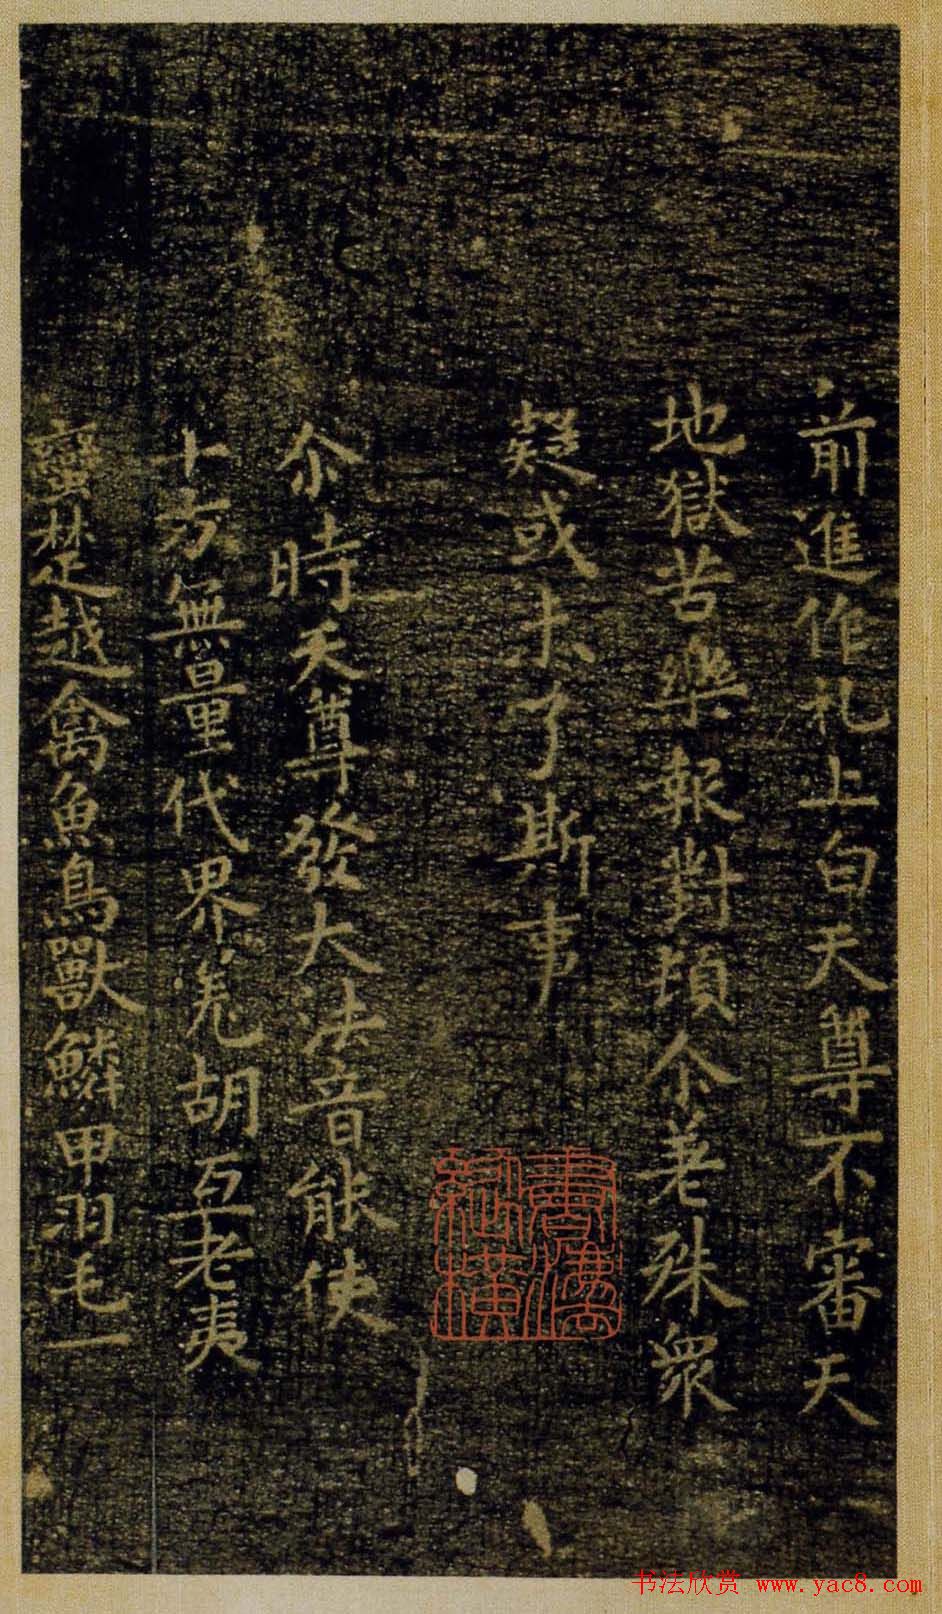 前進作礼上白天尊不審天
地獄苦樂報對頓尒差殊衆
疑或未了斯事
尒時天尊發大法音能使
十方無量代界羌胡互老夷
蠻楚越禽魚鳥獸鱗甲羽毛一
书法欣赏 www.yac8.com